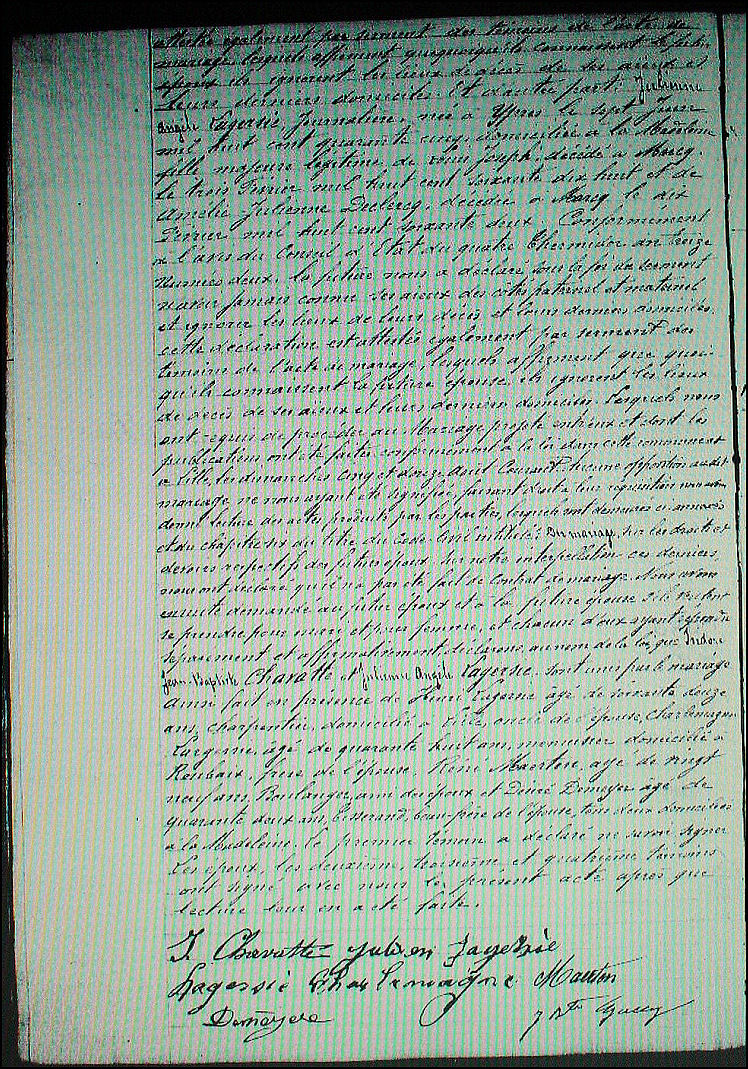 attesté également par serment des témoins de l'acte de
mariage lesquels affirment quoiqu'ils connaissent le futur
époux ils ignorent les lieux de décès de ses aïeux et
leurs derniers domiciles. Et d'autre part, Julienne
Angèle Lagersie, Journalière, née à Ypres le sept Juin
mil huit cent quarante cinq, domiciliée à la Madeleine
fille majeure légitime de Louis Joseph, décédé à Marcq
le trois Février mil huit cent soixante dix huit et de
Amélie Julienne Declercq, décédée à Marcq le dix
Février mil huit cent soixante deux. Conformément
à l'avis du Conseil d'Etat du quatre Thermidor an treize
numéro deux, la future nous a déclaré, sous la foi du serment
n'avoir jamais connu ses aieux des côtés paternel et maternel
et ignorer les lieux de leurs décès et leurs derniers domiciles
cette déclaration est attestée également par serment des
témoins de l'acte de mariage, lesquels affirment que quoi
qu'ils connaissent la future épouse, ils ignorent les lieux
de décès de ses aieux et leurs derniers domiciles. Lesquels nous
ont requis de procéder au Mariage projeté entr'eux et dont les
publications ont été faites conformément à la loi dans cette commune et
à Lille, les dimanches cinq et douze Aout Courant. Aucune opposition audit
mariage ne nous ayant été signifiée, faisant droit à leur réquisition nous avons
donné lecture des actes produits par les parties, lesquels sont demeurés ci annexés
et du chapitre six du titre du Code Civil intitulé: Du mariage, sur les droits et
devoirs respectifs des futurs époux. Sur notre interpellation ces derniers
nous ont déclaré qu'il n'a pas été fait de Contrat de mariage. Nous avons
ensuite demandé au futur époux et à la future épouse s'ils veulent
se prendre pour mari et pour femme, et chacun d'eux ayant répondu
séparément et affirmativement, déclarons, au nom de la loi, que Isidore
Jean-Baptiste Chavatte et Julienne Angèle Lagersie sont unis par le mariage
Ainsi fait en présence de Henri Lagersie âgé de soixante douze
ans, charpentier, domicilié à Lille, oncle de l'épouse, Charlemagne
Lagersie, âgé de quarante huit ans, menuisier domicilié à
Roubaix, frère de l'épouse, Réné Maerten, âgé de vingt
neuf ans, Boulanger, ami des époux et Désiré Demeyer âgé de
quarante deux ans, tisserand, beau-frère de l'épouse, tous deux domiciliés
à la Madeleine. Le premier témoin a déclaré ne savoir signer
Les époux, les deuxième, troisième et quatrième témoins
ont signé avec nous le présent acte après que
lecture leur en a été faite.
I. Chavatte Julien Lagersie
Lagersie Charlemagne Maerten
Demeyere